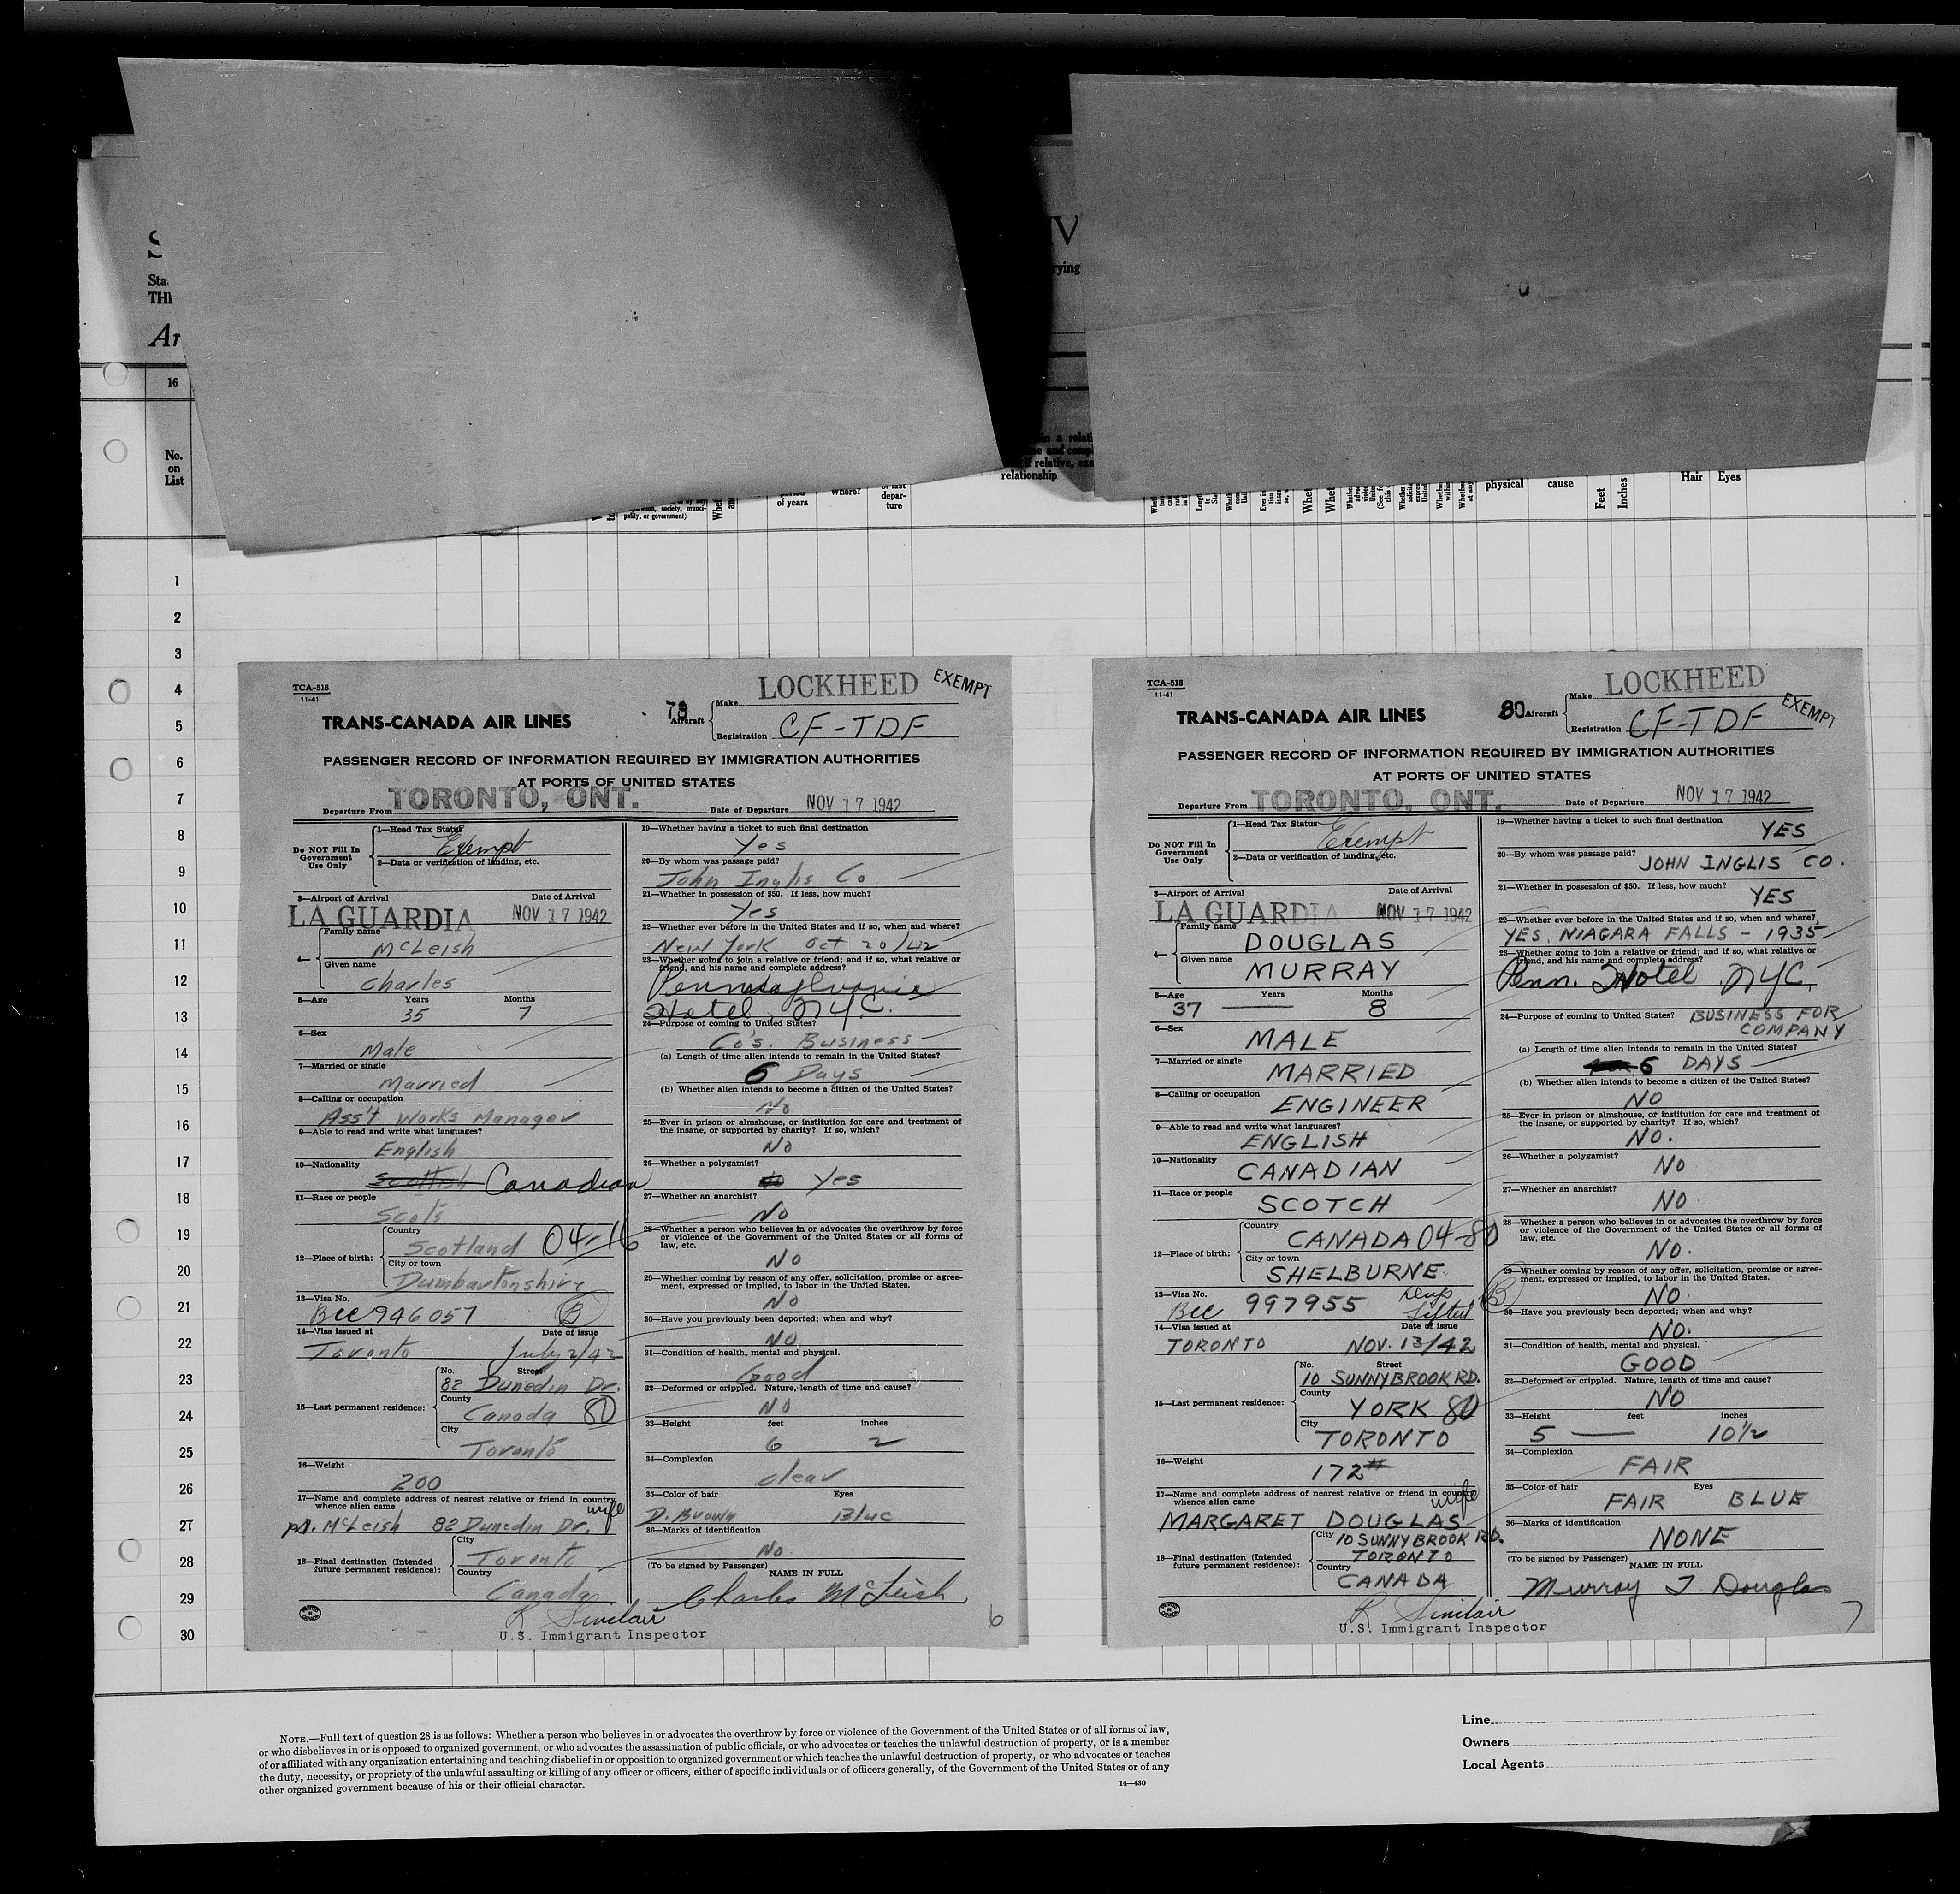 Sta
TH
Ar
16
No.
on
List
rying
in a relati
relative, exa
relationship
pality, or government)
of years
Where?
of last
depar-
ture
physical
cause
Feet
Inches
Hair
Eyes
1
2
3
4
5
6
7
8
9
10
11
12
13
14
15
16
17
18
19
20
21
22
23
24
25
26
27
28
29
30
TCA-518
11-41
LOCKHEED
EXEMPT
TRANS-CANADA AIR LINES
78 Aircraft
Make
Registration CF-TDF
PASSENGER RECORD OF INFORMATION REQUIRED BY IMMIGRATION AUTHORITIES
AT PORTS OF UNITED STATES
Departure From TORONTO, ONT. Date of Departure NOV 17 1942
Do NOT Fill In
Government
Use Only
1—Head Tax Status
Exempt
2—Data or verification of landing, etc.
3—Airport of Arrival Date of Arrival
LA GUARDIA NOV 17 1942
4— Family name
McLeish
Given name
Charles
5—Age Years Months
35 7
6—Sex
Male
7—Married or single
Married
8—Calling or occupation
Ass't Works Manager
9—Able to read and write what languages?
English
10—Nationality
Scottish Canadian
11—Race or people
Scots
12—Place of birth: Country
Scotland 04-16
City or town
Dumbartonshire
13—Visa No.
BCC 946057 B
14—Visa issued at Date of issue
Toronto July 2/42
15—Last permanent residence: No. Street
82 Dunedin Dr.
County
Canada 80
City
Toronto
16—Weight
200
17—Name and complete address of nearest relative or friend in country
whence alien came wife
M. McLeish 82 Dunedin Dr.
18—Final destination (Intended
future permanent residence): City
Toronto
Country
Canada
R Sinclair
U.S. Immigrant Inspector
19—Whether having a ticket to such final destination
Yes
20—By whom was passage paid?
John Inglis Co
21—Whether in possession of $50. If less, how much?
Yes
22—Whether ever before in the United States and if so, when and where?
New York Oct 20/42
23—Whether going to join a relative or friend; and if so, what relative or
friend, and his name and complete address?
Pennsylvania
Hotel, N.Y.C.
24—Purpose of coming to United States?
Co's. Business
(a) Length of time alien intends to remain in the United States?
6 Days
(b) Whether alien intends to become a citizen of the United States?
No
25—Ever in prison or almshouse, or institution for care and treatment of
the insane, or supported by charity? If so, which?
No
26—Whether a polygamist?
Yes
27—Whether an anarchist?
No
28—Whether a person who believes in or advocates the overthrow by force
or violence of the Government of the United States or all forms of
law, etc.
No
29—Whether coming by reason of any offer, solicitation, promise or agree-
ment, expressed or implied, to labor in the United States.
No
30—Have you previously been deported; when and why?
No
31—Condition of health, mental and physical.
Good
32—Deformed or crippled. Nature, length of time and cause?
No
33—Height feet inches
6 2
34—Complexion
clear
35—Color of hair Eyes
D. Brown Blue
36—Marks of identification
No
(To be signed by Passenger)
NAME IN FULL
Charles McLeish
6
TCA-518
11-41
LOCKHEED
EXEMPT
TRANS-CANADA AIR LINES
80 Aircraft
Make
Registration CF-TDF
PASSENGER RECORD OF INFORMATION REQUIRED BY IMMIGRATION AUTHORITIES
AT PORTS OF UNITED STATES
Departure From TORONTO, ONT. Date of Departure NOV 17 1942
Do NOT Fill In
Government
Use Only
1—Head Tax Status
Exempt
2—Data or verification of landing, etc.
3—Airport of Arrival Date of Arrival
LA GUARDIA NOV 17 1942
4— Family name
DOUGLAS
Given name
MURRAY
5—Age Years Months
37 8
6—Sex
MALE
7—Married or single
MARRIED
8—Calling or occupation
ENGINEER
9—Able to read and write what languages?
ENGLISH
10—Nationality
CANADIAN
11—Race or people
SCOTCH
12—Place of birth: Country
CANADA 04-80
City or town
SHELBURNE
13—Visa No.
BCC 997955 Lifted B
14—Visa issued at Date of issue
TORONTO NOV. 13/42
15—Last permanent residence: No. Street
10 SUNNYBROOK RD.
County
YORK 80
City
TORONTO
16—Weight
172#
17—Name and complete address of nearest relative or friend in country
whence alien came wife
MARGARET DOUGLAS
18—Final destination (Intended
future permanent residence): City 10 SUNNYBROOK RD.
TORONTO
Country
CANADA
R Sinclair
U.S. Immigrant Inspector
19—Whether having a ticket to such final destination
YES
20—By whom was passage paid? JOHN INGLIS CO.
21—Whether in possession of $50. If less, how much?
YES
22—Whether ever before in the United States and if so, when and where?
YES. NIAGARA FALLS - 1935
23—Whether going to join a relative or friend; and if so, what relative or
friend, and his name and complete address?
Penn. Hotel N.Y.C.
24—Purpose of coming to United States? BUSINESS FOR
COMPANY
(a) Length of time alien intends to remain in the United States?
6 DAYS
(b) Whether alien intends to become a citizen of the United States?
NO
25—Ever in prison or almshouse, or institution for care and treatment of
the insane, or supported by charity? If so, which?
NO.
26—Whether a polygamist?
NO
27—Whether an anarchist?
NO
28—Whether a person who believes in or advocates the overthrow by force
or violence of the Government of the United States or all forms of
law, etc.
NO.
29—Whether coming by reason of any offer, solicitation, promise or agree-
ment, expressed or implied, to labor in the United States.
NO.
30—Have you previously been deported; when and why?
NO.
31—Condition of health, mental and physical.
GOOD
32—Deformed or crippled. Nature, length of time and cause?
NO
33—Height feet inches
5 10½
34—Complexion
FAIR
35—Color of hair Eyes
FAIR BLUE
36—Marks of identification
NONE
(To be signed by Passenger)
NAME IN FULL
Murray T. Douglas
7
NOTE.—Full text of question 28 is as follows: Whether a person who believes in or advocates the overthrow by force or violence of the Government of the United States or of all forms of law,
or who disbelieves in or is opposed to organized government, or who advocates the assassination of public officials, or who advocates or teaches the unlawful destruction of property, or is a member
of or affiliated with any organization entertaining and teaching disbelief in or opposition to organized government or which teaches the unlawful destruction of property, or who advocates or teaches
the duty, necessity, or propriety of the unlawful assaulting or killing of any officer or officers, either of specific individuals or of officers generally, of the Government of the United States or of any
other organized government because of his or their official character.
14—430
Line
Owners
Local Agents